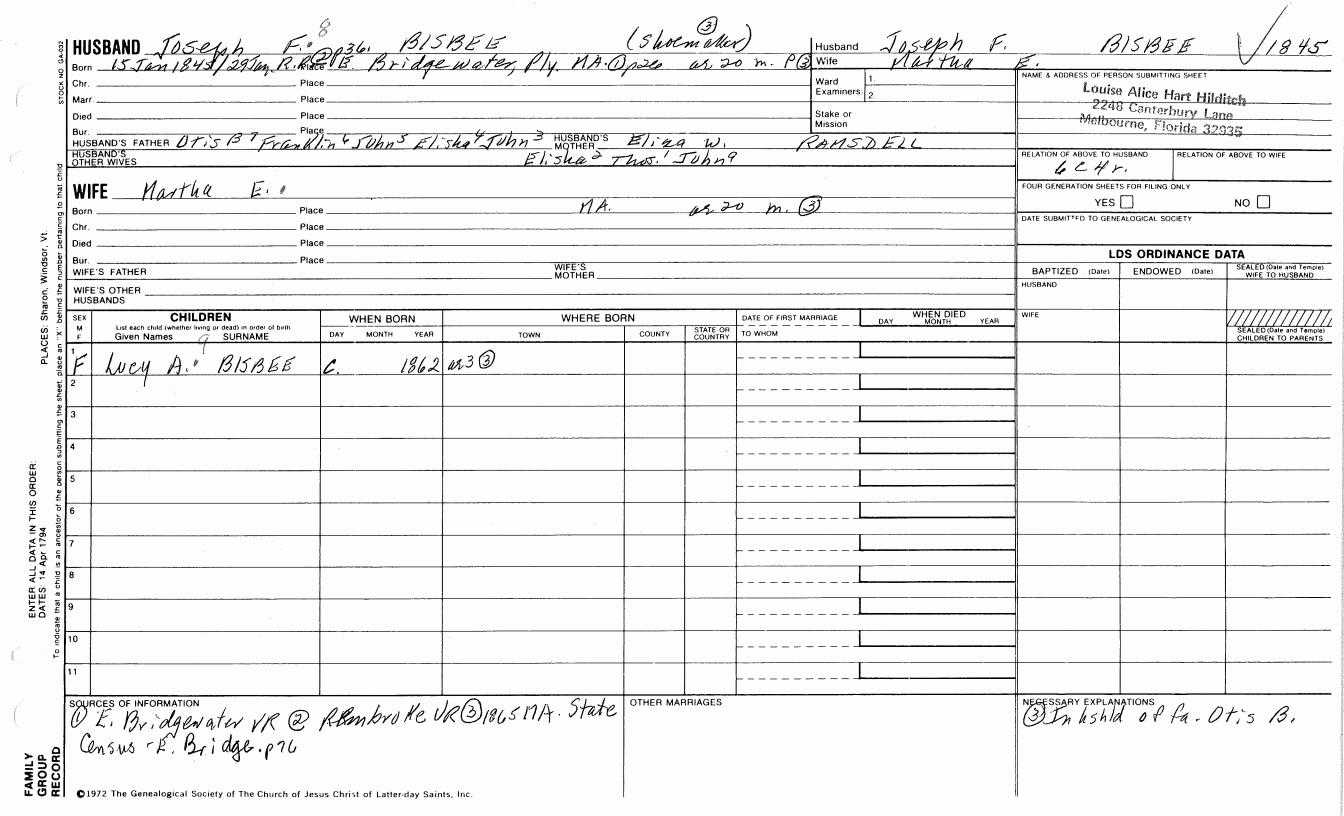 8
HUSBAND Joseph F. p36. BISBEE (Shoemaker) ③
Born 15 Jan 1845/29 Jan. R.R.② Place E. Bridgewater, Ply. MA. ① p26 ar 20 m. P③
Chr. Place
Marr Place
Died Place
Bur. Place
HUSBAND'S FATHER Otis B 7 Franklin 6 John 5 Elisha 4 John 3 HUSBAND'S MOTHER Eliza W. RAMSDELL
HUSBAND'S OTHER WIVES Elisha 2 Thos. 1 John a
Husband Joseph F. BISBEE √ 1845
Wife Martha E.
Ward Examiners 1. 2.
Stake or Mission
NAME & ADDRESS OF PERSON SUBMITTING SHEET
Louise Alice Hart Hilditch
2248 Canterbury Lane
Melbourne, Florida 32935
RELATION OF ABOVE TO HUSBAND RELATION OF ABOVE TO WIFE
6 C 4 r.
FOUR GENERATION SHEETS FOR FILING ONLY
YES NO
DATE SUBMITTED TO GENEALOGICAL SOCIETY
WIFE Martha E.
Born Place MA. ar 20 m. ③
Chr. Place
Died Place
Bur. Place
WIFE'S FATHER WIFE'S MOTHER
WIFE'S OTHER HUSBANDS
LDS ORDINANCE DATA
BAPTIZED (Date) ENDOWED (Date) SEALED (Date and Temple) WIFE TO HUSBAND
HUSBAND
WIFE
SEALED (Date and Temple) CHILDREN TO PARENTS
SEX M F CHILDREN WHEN BORN WHERE BORN DATE OF FIRST MARRIAGE WHEN DIED
List each child (whether living or dead) in order of birth
Given Names SURNAME DAY MONTH YEAR TOWN COUNTY STATE OR COUNTRY TO WHOM DAY MONTH YEAR
9
1 F Lucy A. BISBEE c. 1862 ar 3 ③
2
3
4
5
6
7
8
9
10
11
SOURCES OF INFORMATION
① E. Bridgewater VR ② Pembroke VR ③ 1865 MA. State
Census - E. Bridge. p76
OTHER MARRIAGES
NECESSARY EXPLANATIONS
③ In hshld of fa. Otis B.
©1972 The Genealogical Society of The Church of Jesus Christ of Latter-day Saints, Inc.
STOCK NO. GA-032
To indicate that a child is an ancestor of the person submitting the sheet, place an "X" behind the number pertaining to that child
ENTER ALL DATA IN THIS ORDER:
DATES: 14 Apr 1794
PLACES: Sharon, Windsor, Vt.
FAMILY
GROUP
RECORD